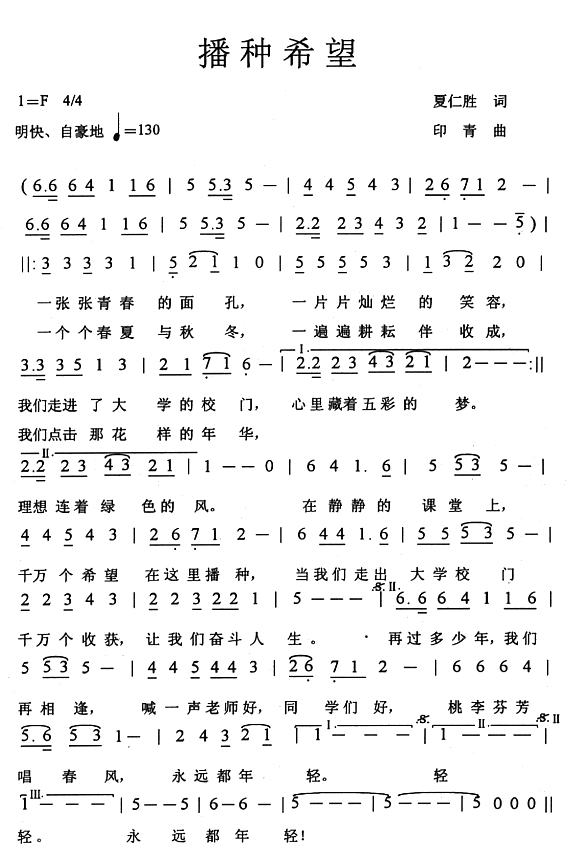 播种希望
1=F 4/4 夏仁胜 词
明快、自豪地 ♩=130 印 青 曲
(6.6 6 4 1 1 6 | 5 5.3 5 – | 4 4 5 4 3 | 2 6 7 1 2 – |
6.6 6 4 1 1 6 | 5 5.3 5 – | 2.2 2 3 4 3 2 | 1 – – 5) |
||: 3 3 3 3 1 | 5 2 1 1 0 | 5 5 5 5 3 | 1 3 2 2 0 |
一张张青春 的面 孔, 一片片灿烂 的 笑容,
一个个春夏 与秋 冬, 一遍遍耕耘 伴 收成,
3.3 3 5 1 3 | 2 1 7 1 6 – | I. 2.2 2 3 4 3 2 1 | 2 – – – :||
我们走进 了大 学的校 门, 心里藏着五彩的 梦。
我们点击 那花 样的年 华,
II. 2.2 2 3 4 3 2 1 | 1 – – 0 | 6 4 1. 6 | 5 5 3 5 – |
理想 连着 绿 色的 风。 在 静静的 课堂 上,
4 4 5 4 3 | 2 6 7 1 2 – | 6 4 4 1. 6 | 5 5 5 3 5 – |
千万 个希望 在这里播 种, 当我们走出 大学校 门
2 2 3 4 3 | 2 2 3 2 2 1 | 5 – – – | 𝄋 II. 6. 6 6 4 1 1 6 |
千万个收获, 让我们奋斗人 生。 再过多少年,我们
5 5 3 5 – | 4 4 5 4 4 3 | 2 6 7 1 2 – | 6 6 6 4 |
再相 逢, 喊一声老师好, 同 学们 好, 桃李芬芳
5. 6 5 3 1 – | 2 4 3 2 1 | I. 1 – 1 – 𝄋 | II. 1 – – – 𝄋 II. |
唱 春 风, 永远都年 轻。 轻
III. 1 – – – | 5 – – 5 | 6 – 6 – | 5 – – – | 5 – – – | 5 0 0 0 ||
轻。 永 远 都 年 轻!